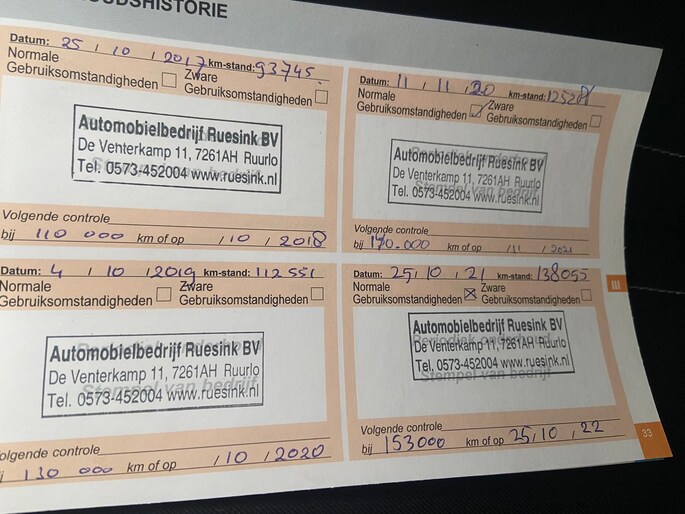 OUDSHISTORIE
Datum: 25 / 10 / 2017 km-stand: 93745.
Normale Gebruiksomstandigheden Zware Gebruiksomstandigheden
Automobielbedrijf Ruesink BV
De Venterkamp 11, 7261AH Ruurlo
Tel. 0573-452004 www.ruesink.nl
Volgende controle
bij 110 000 km of op / 10 / 2018
Datum: 4 / 10 / 2019 km-stand: 112551
Normale Gebruiksomstandigheden Zware Gebruiksomstandigheden
Automobielbedrijf Ruesink BV
De Venterkamp 11, 7261AH Ruurlo
Tel. 0573-452004 www.ruesink.nl
Stempel van bedrijf
Volgende controle
130 000 km of op / 10 / 2020
Datum: 11 / 11 / 20 km-stand:
Normale Gebruiksomstandigheden Zware Gebruiksomstandigheden
Automobielbedrijf Ruesink BV
De Venterkamp 11, 7261AH Ruurlo
Tel. 0573-452004 www.ruesink.nl
Volgende controle
bij 140.000 km of op / 11 / 2021
Datum: 25 / 10 / 21 km-stand: 138095
Normale Gebruiksomstandigheden Zware Gebruiksomstandigheden
Periodiek onderhoud
Automobielbedrijf Ruesink BV
De Venterkamp 11, 7261AH Ruurlo
Tel. 0573-452004 www.ruesink.nl
Stempel van bedrijf
Volgende controle
bij 153000 km of op 25 / 10 / 22
III
33